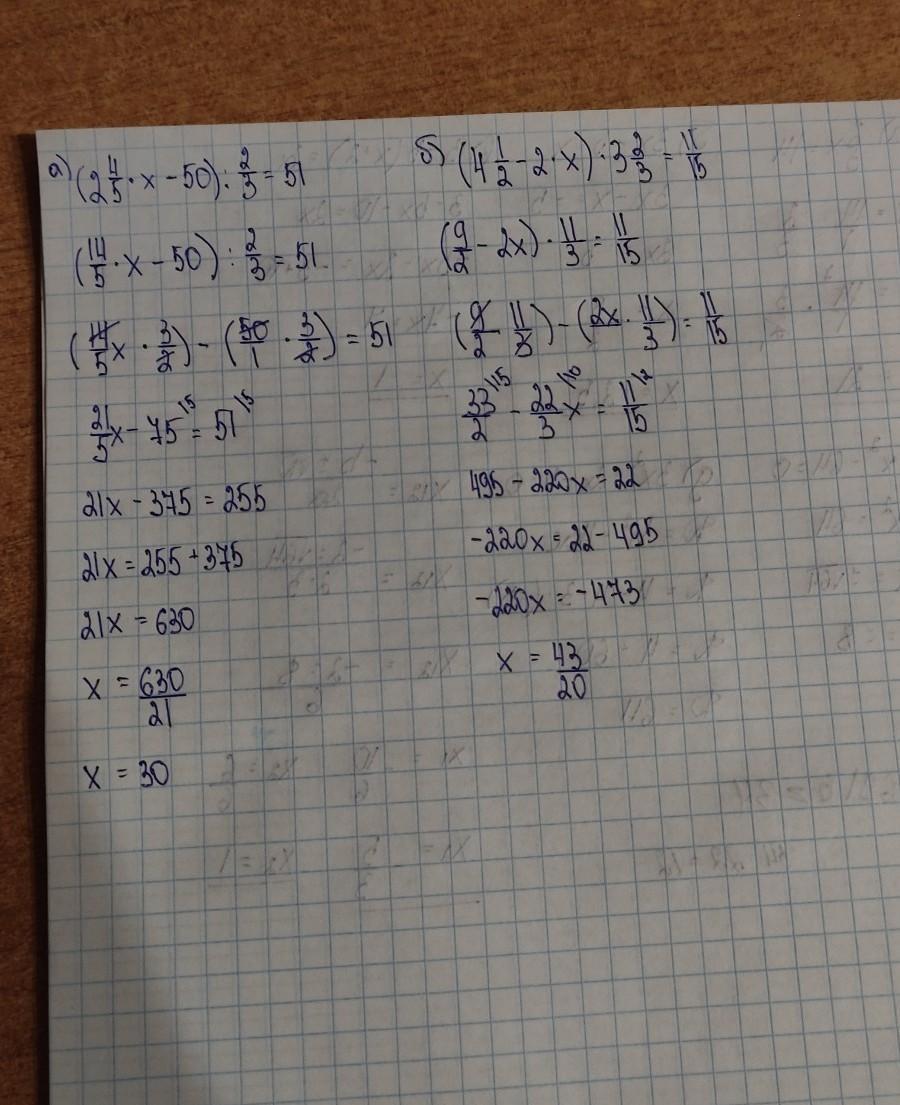 а) (2 4/5 · x - 50) : 2/3 = 51
(14/5 · x - 50) : 2/3 = 51
(14/5 x · 3/2) - (50/1 · 3/2) = 51
21/5 x - 75 \5 = 51 \5
21x - 375 = 255
21x = 255 + 375
21x = 630
x = 630/21
x = 30
б) (4 1/2 - 2 · x) · 3 2/3 = 11/15
(9/2 - 2x) · 11/3 = 11/15
(9/2 11/3) - (2x · 11/3) = 11/15
33/2 \15 - 22/3 x \10 = 11/15 \2
495 - 220x = 22
-220x = 22 - 495
-220x = -473
x = 43/20